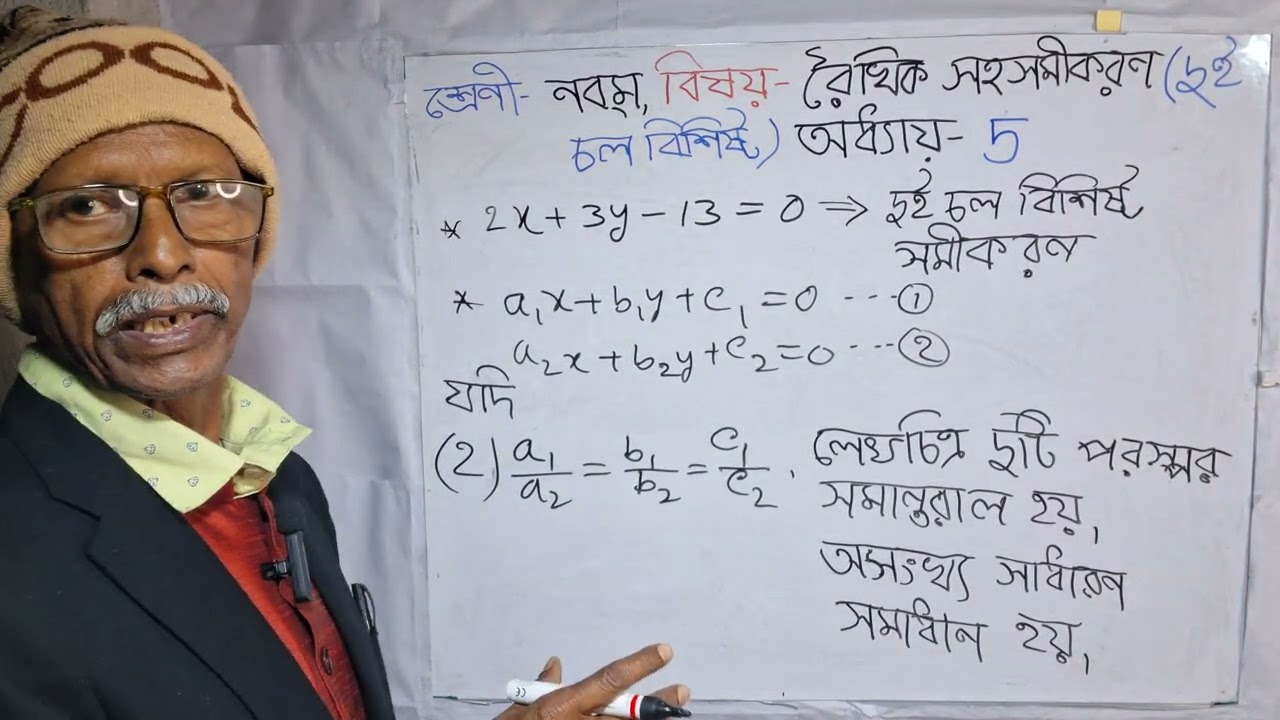 শ্রেণী- নবম, বিষয়- রৈখিক সহসমীকরণ (দুই
চল বিশিষ্ট) অধ্যায়- 5
* 2x + 3y - 13 = 0 ⇒ দুই চল বিশিষ্ট
সমীকরণ
* a₁x + b₁y + c₁ = 0 ---①
a₂x + b₂y + c₂ = 0 ---②
যদি
(2) a₁/a₂ = b₁/b₂ = c₁/c₂ . লেখচিত্র দুটি পরস্পর
সমান্তরাল হয়,
অসংখ্য সাধারন
সমাধান হয়,